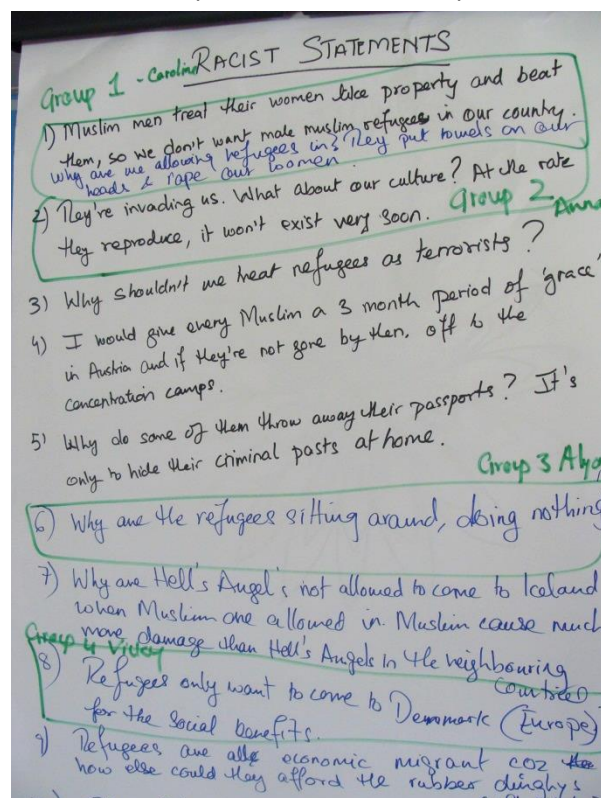 RACIST STATEMENTS
Group 1 - Carolina
1) Muslim men treat their women like property and beat
them, so we don't want male muslim refugees in our country.
Why are we allowing refugees in? They put towels on our
heads & rape our women.
2) They're invading us. What about our culture? At the rate
they reproduce, it won't exist very soon. Group 2 Anna
3) Why shouldn't we treat refugees as terrorists?
4) I would give every Muslim a 3 month period of 'grace'
in Austria and if they're not gone by then, off to the
concentration camps.
5) Why do some of them throw away their passports? It's
only to hide their criminal pasts at home.
Group 3
6) Why are the refugees sitting around, doing nothing
7) Why are Hell's Angel's not allowed to come to Iceland
when Muslim are allowed in. Muslim cause much
more damage than Hell's Angels in the neighbouring
countries
Group 4 Vicky
8) Refugees only want to come to Denmark (Europe)
for the social benefits.
9) Refugees are economic migrant coz
how else could they afford the rubber dinghys